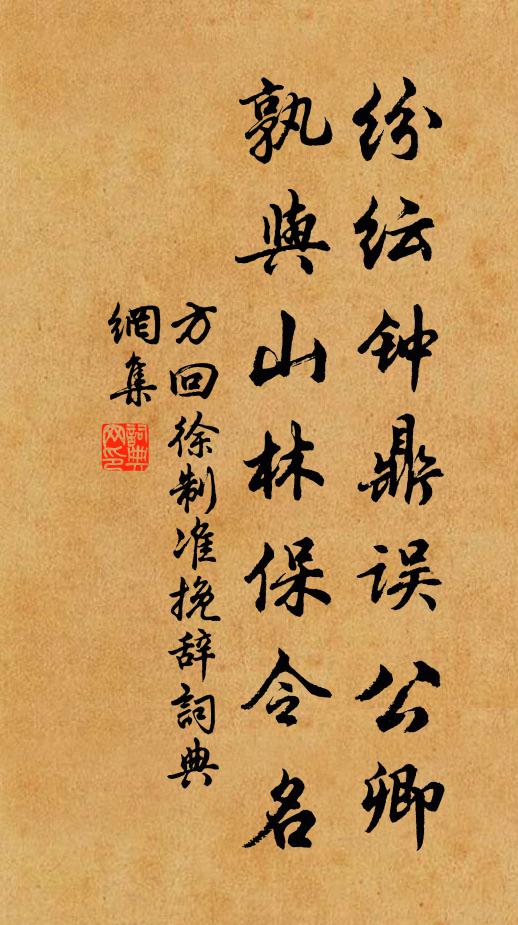 纷纭钟鼎误公卿
孰與山林保令名
方回徐制准挽辞詞典
網集
詞典
网印